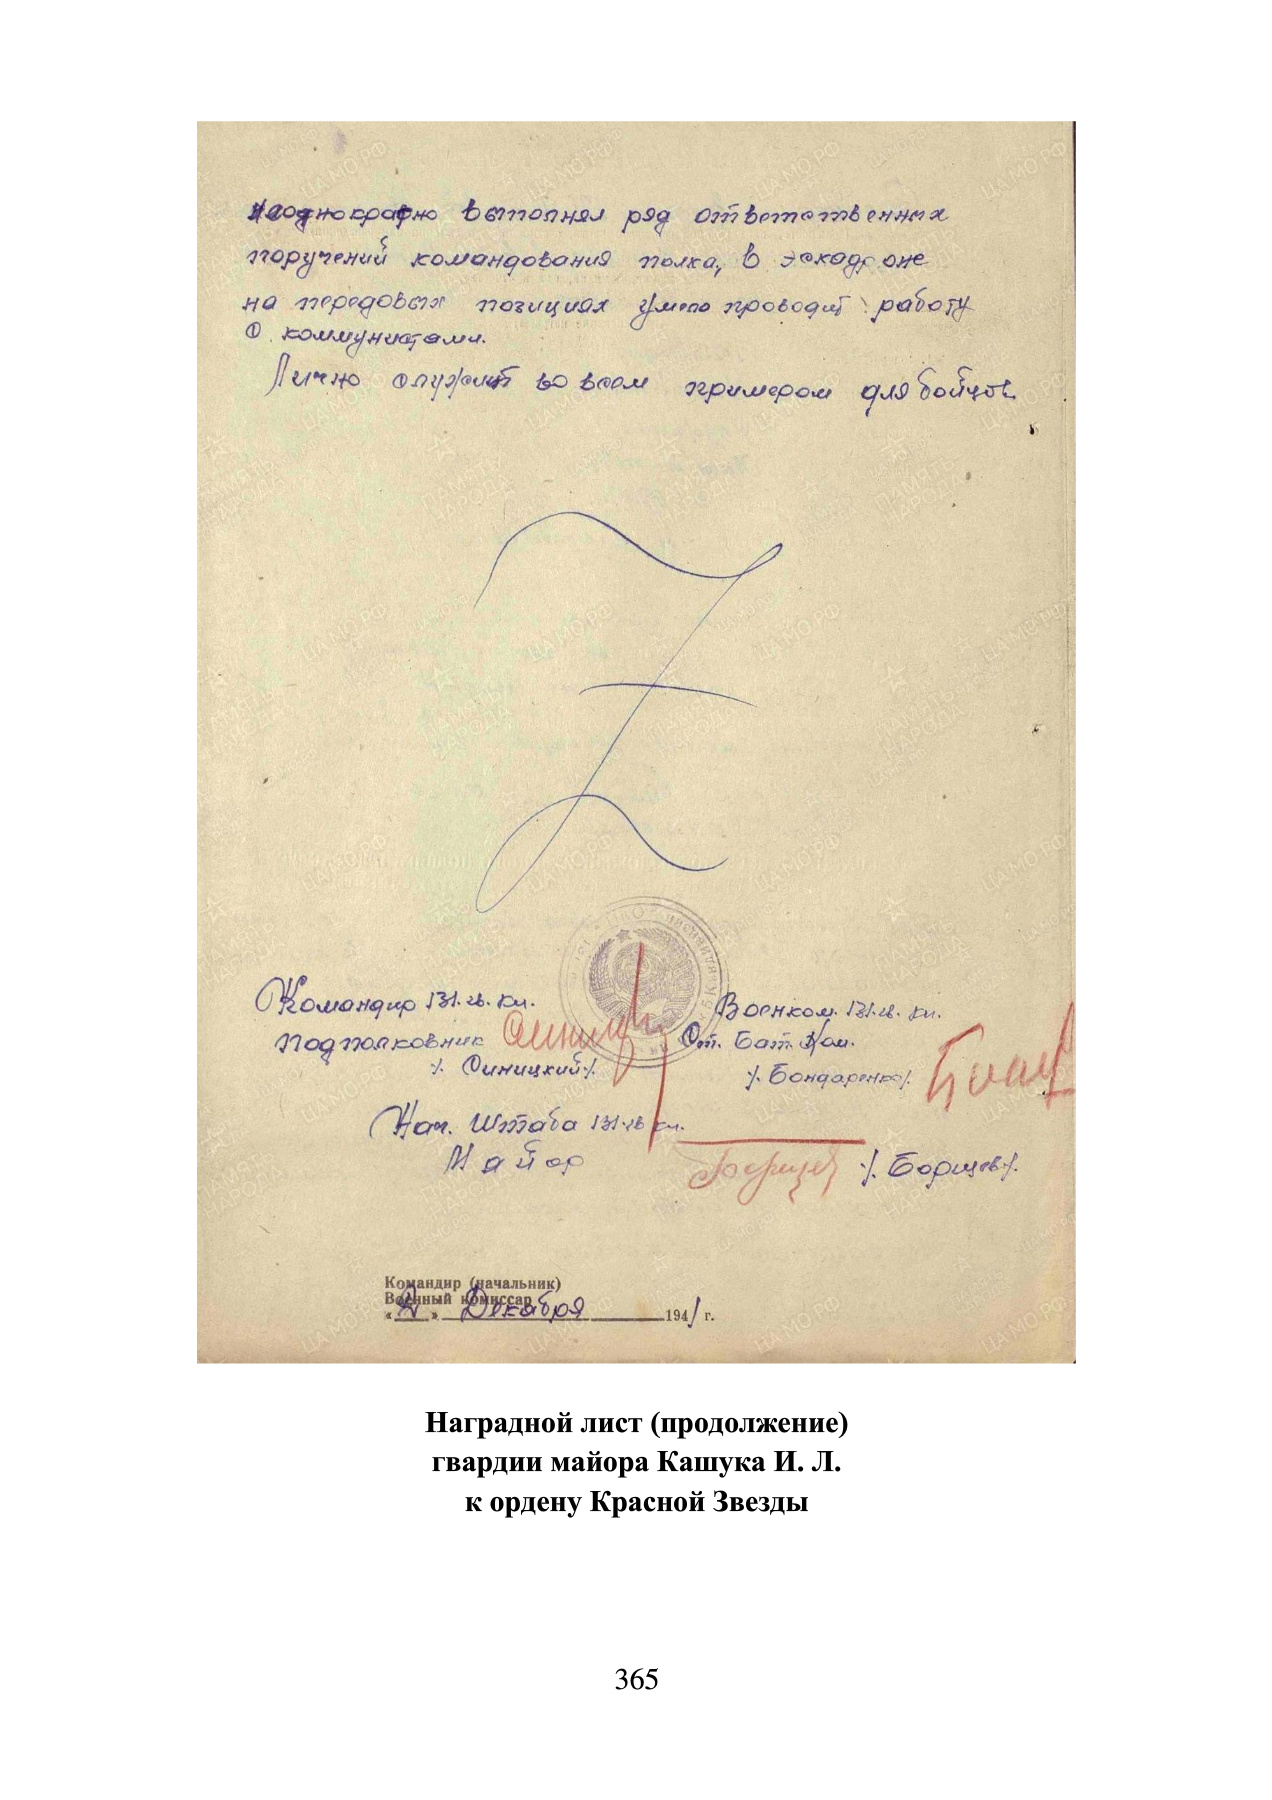 неоднократно выполнял ряд ответственных
поручений командования полка, в эскадроне
на передовых позициях умело проводит работу
с коммунистами.
Лично служит во всем примером для бойцов
Командир 131 гв. кп.
подполковник
/. Синицкий /.
Военком. 131 гв. кп.
Ст. Бат. Ком.
/. Бондаренко /.
Нач. Штаба 131 гв кп.
Майор
/. Борщев /.
Командир (начальник)
Военный комиссар
« » Декабря 1941 г.
Наградной лист (продолжение)
гвардии майора Кашука И. Л.
к ордену Красной Звезды
365